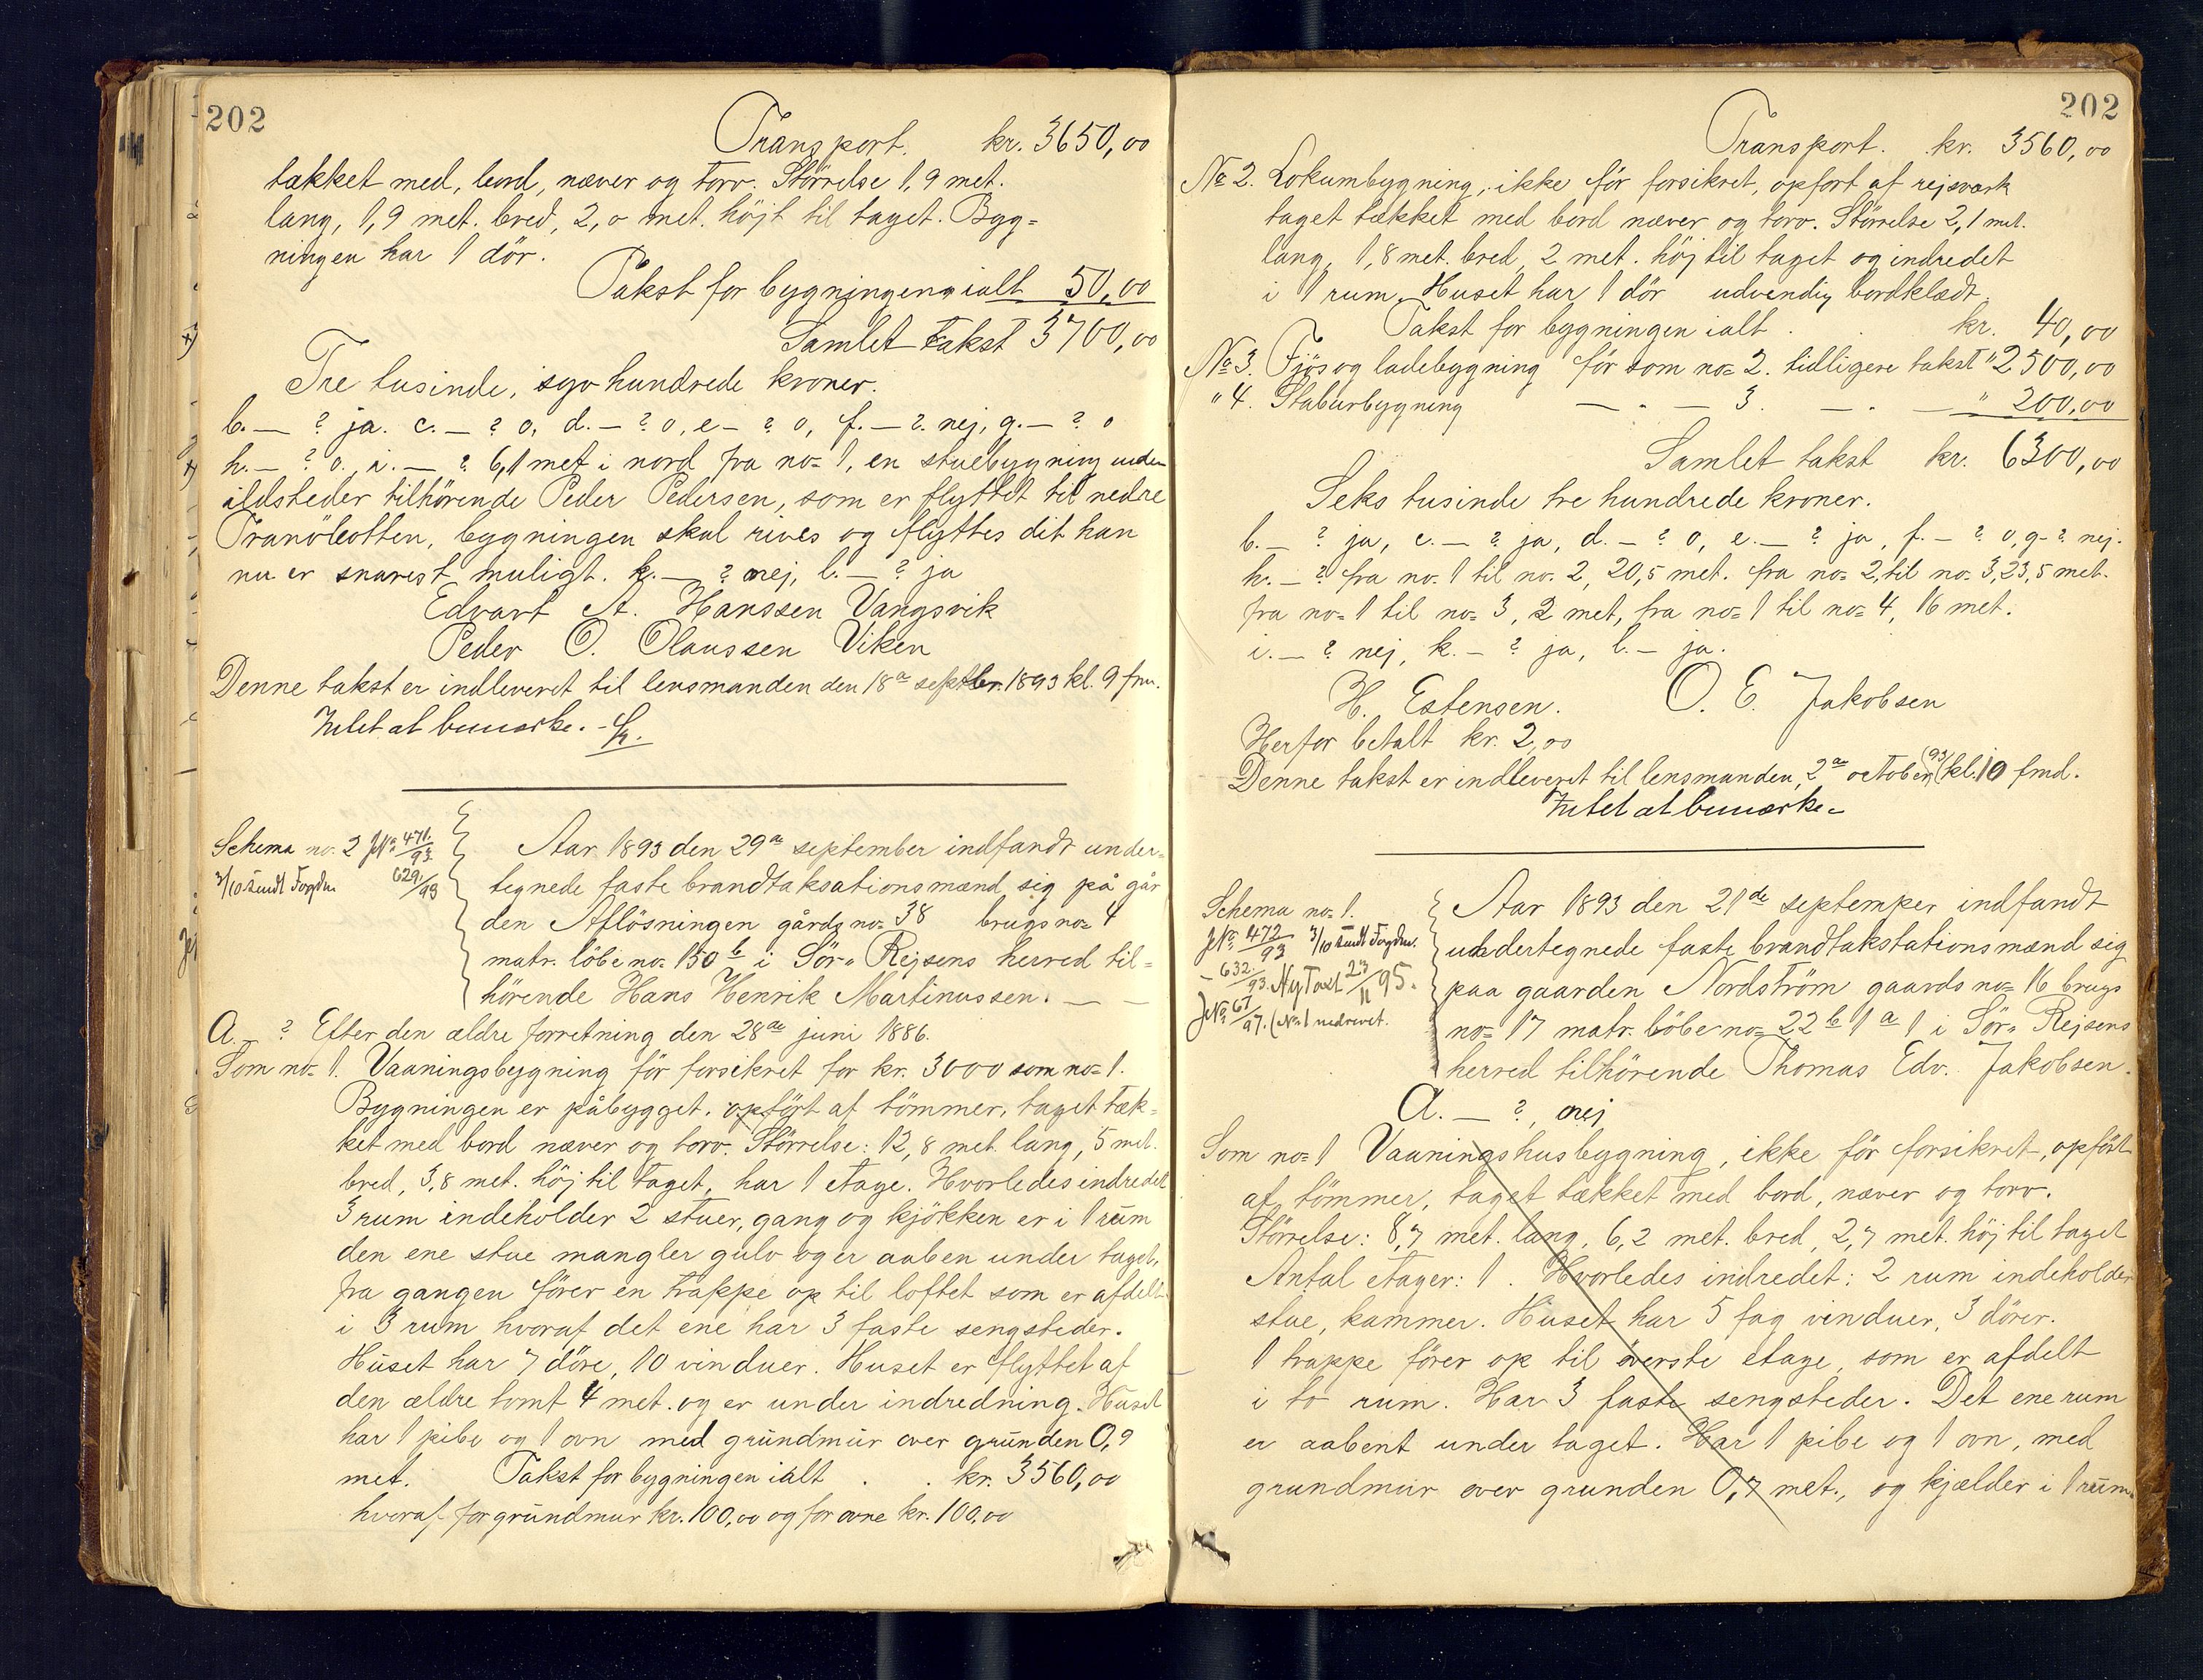 202
Transport. kr. 3650,00
takket med, bord, næver og torv. Störrelse 1,9 met.
lang, 1,9 met. bred, 2,0 met. höjt til taget. Byg=
ningen har 1 dör.
Takst for bygningen ialt 50,00
Samlet takst 3700,00
Tre tusinde, syv hundrede kroner.
b. — ? ja. c. — ? 0, d. — ? 0, e — ? 0, f. — ? nej, g. — ? 0
h. — ? 0. i. — ? 6,1 met i nord fra no= 1, en stuebygning uden
ildsteder tilhörende Peder Pedersen, som er flyttet til nedre
Tranökotten, bygningen skal rives og flyttes dit han
nu er snarest muligt. k. — ? nej, l. — ? ja
Edvart A. Hanssen Vangsvik
Peder O. Olaussen Viken
Denne takst er indleveret til lensmanden den 18de septbr. 1893 kl. 9 fm.
Intet at bemærke. -
Schema no. 2 JNo 471./93.
3/10 sendt Fogden 629./93
Aar 1893 den 29de september indfandt under=
tegnede faste brandtaksationsmænd sig på går
den Aflösningen gårds no= 38 brugs no= 4
matr. löbe no= 150 b i Sör= Rejsens herred til=
hörende Hans Henrik Martinussen. — —
A. — ? Efter den ældre forretning den 28de juni 1886.
Som no= 1. Vaaningsbygning för forsikret for kr. 3000 som no= 1.
Bygningen er påbygget. opfört af tömmer, taget tæk=
ket med bord næver og torv. Störrelse: 12,8 met. lang, 5 met.
bred, 3,8 met. höj til taget, har 1 etage. Hvorledes indredet
3 rum indeholder 2 stuer, gang og kjökken er i 1 rum
den ene stue mangler gulv og er aaben under taget.
fra gangen förer en trappe op til loftet som er afdelt
i 3 rum hvoraf det ene har 3 faste sengsteder.
Huset har 7 döre, 10 vinduer. Huset er flyttet af
den ældre tomt 4 met. og er under indredning. Huset
har 1 pibe og 1 ovn med grundmur over grunden 0,9
met. Takst for bygningen ialt . . kr. 3560,00
hvoraf for grundmur kr. 100,00 og for ovne kr. 100,00
202
Transport. kr. 3560,00
No 2. Lokumbygning, ikke för forsikret, opfort af rejsværk
taget tækket med bord næver og torv. Störrelse 2,1 met.
lang, 1,8 met. bred, 2 met. höj til taget og indredet
i 1 rum. Huset har 1 dör udvendig bordklædt.
Takst for bygningen ialt . . kr. 40,00
No 3. Fjös og ladebygning för som no= 2. tidligere takst " 2500,00
" 4. Staburbygning — " — 3. — " — " 200,00
Samlet takst kr. 6300,00
Seks tusinde tre hundrede kroner.
b. — ? ja, c. — ? ja, d. — ? 0, e. — ? ja, f. — ? 0, g- ? nej.
h. — ? fra no. 1 til no= 2, 20,5 met. fra no= 2, til no= 3, 23,5 met.
fra no= 1 til no= 3, 2 met, fra no= 1 til no= 4, 16 met.
i. — ? nej, k. — ? ja, l. — ja.
H. Estensen. O. E. Jakobsen
Herfor betalt kr. 2,00
Denne takst er indleveret til lensmanden, 2de october (93) kl. 10 fmd.
Intet at bemærke =
Schema no= 1.
JNo 472/93 3/10 sendt Fogden.
- 632./93. Ny Taxt 23/11 95.
JNo 61/97. (No 1 nedrevet.
Aar 1893 den 21de septemper indfandt
undertegnede faste brandtakstationsmænd sig
paa gaarden Nordström gaards no= 16 brugs
no= 17 matr. löbe no= 22 b 1 a 1 i Sör= Rejsens
herred tilhörende Thomas Edv. Jakobsen.
A. — ?, nej
Som no= 1 Vaaningshusbygning, ikke för forsikret, opfört
af tömmer, taget tækket med bord, næver og torv.
Störrelse: 8,7 met. lang, 6,2 met. bred, 2,7 met. höj til taget
Antal etager: 1. Hvorledes indredet: 2 rum indeholder
stue, kammer. Huset har 5 fag vinduer, 3 dörer.
1 trappe förer op til överste etage, som er afdelt
i to rum. Har 3 faste sengsteder. Det ene rum
er aabent under taget. Har 1 pibe og 1 ovn, med
grundmur over grunden 0,7 met., og kjælder i 1 rum.